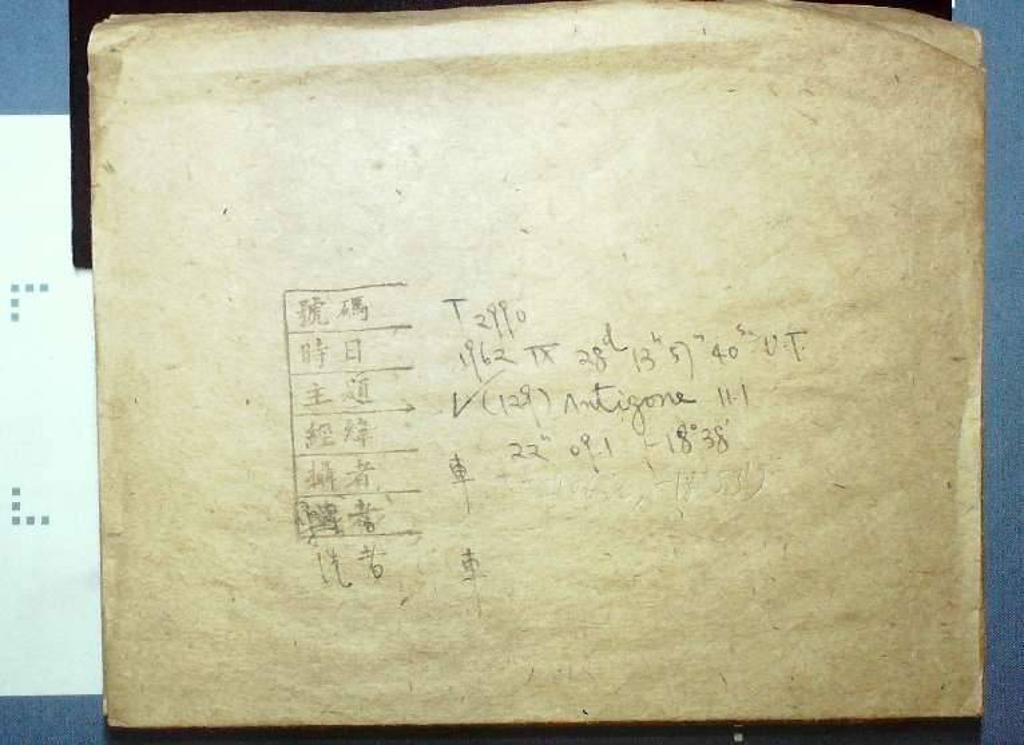 號碼 T 2990
時日 1962 IX 28d 13h 57m 40s U.T.
主題 √ (129) Antigone 11.1
經緯 22h 09.1 -18°38'
攝者 車
者
洗者 車